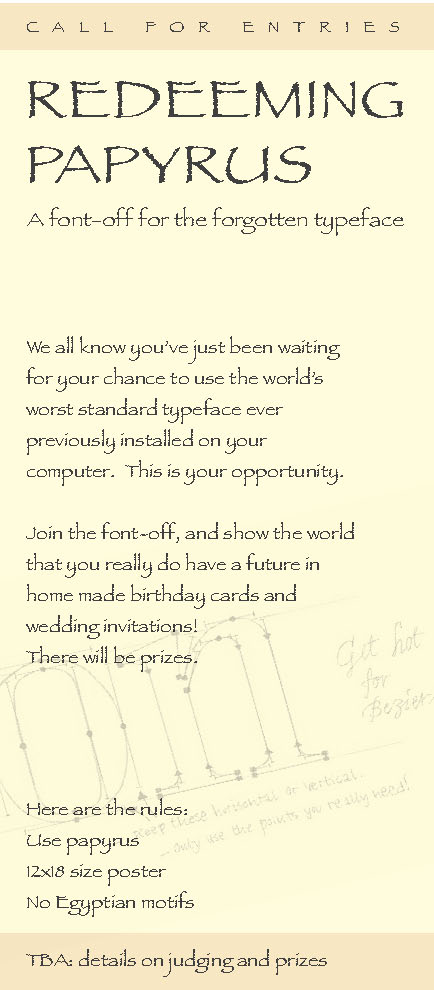 CALL FOR ENTRIES
REDEEMING
PAPYRUS
A font-off for the forgotten typeface
We all know you've just been waiting
for your chance to use the world's
worst standard typeface ever
previously installed on your
computer. This is your opportunity.
Join the font-off, and show the world
that you really do have a future in
home made birthday cards and
wedding invitations!
There will be prizes.
Get hot
for
Bezier
Here are the rules:
keep these horizontal or vertical.
- only use the points you really need!
Use papyrus
12x18 size poster
No Egyptian motifs
TBA: details on judging and prizes